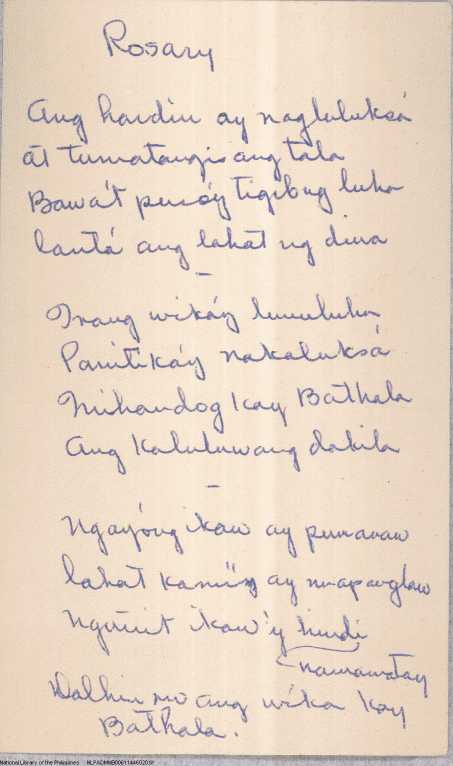 Rosary
Ang hardin ay nagluluksá
at tumatangis ang tala
Bawa't puso'y tigib ng luha
lantá ang lahat ng diwa
–
Inang wika'y lumuluha
Panitika'y nakaluksá
Inihandog kay Bathala
Ang kaluluwang dakila
–
Ngayóng ikaw ay pumanaw
lahat kami'y ay mapanglaw
Nguni't ikaw'y hindi
namamatay
Dalhin mo ang wika kay
Bathala.
National Library of the Philippines NLPADNMB00611446020